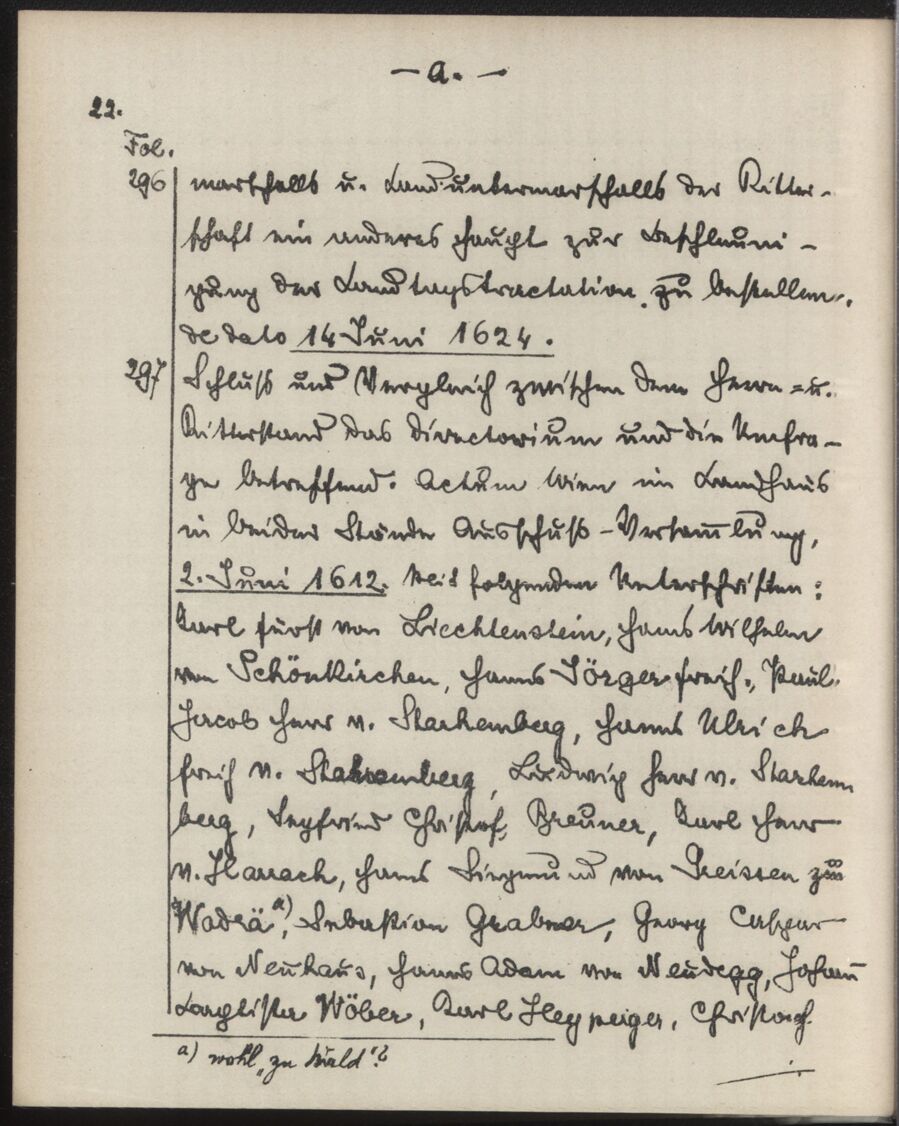 — a. —
22.
Fol.
296 marschalls u. Landuntermarschalls der Ritter-
schaft ein anderes Haupt zur Beschleuni-
gung der Landtagstractation zu bestellen.
de dato 14 Juni 1624.
297 Schluß und Vergleich zwischen dem Herrn = u.
Ritterstand das Directorium und die Umfra-
ge betreffend. Actum Wien im Landhaus
in beider Stände Ausschuß-Versam̅lung,
2. Juni 1612. Mit folgenden Unterschriften:
Karl Fürst von Liechtenstein, Hans Wilhelm
von Schönkirchen, Hanns Jörger Freih., Paul
Jacob Herr v. Starhemberg, Hanns Ulrich
Freih v. Starhemberg, Ludwig Herr v. Starhem
berg, Seyfried Christof Breuner, Karl Herr
v. Harrach, Hans Siegmund von Greissen zu
Wadrä a), Sebastian Grabner, Georg Caspar
von Neuhaus, Hanns Adam von Neudegg, Johan̅
Baptista Wöber, Karl Heypeiger, Christoph
a) wohl „zu Wald"?